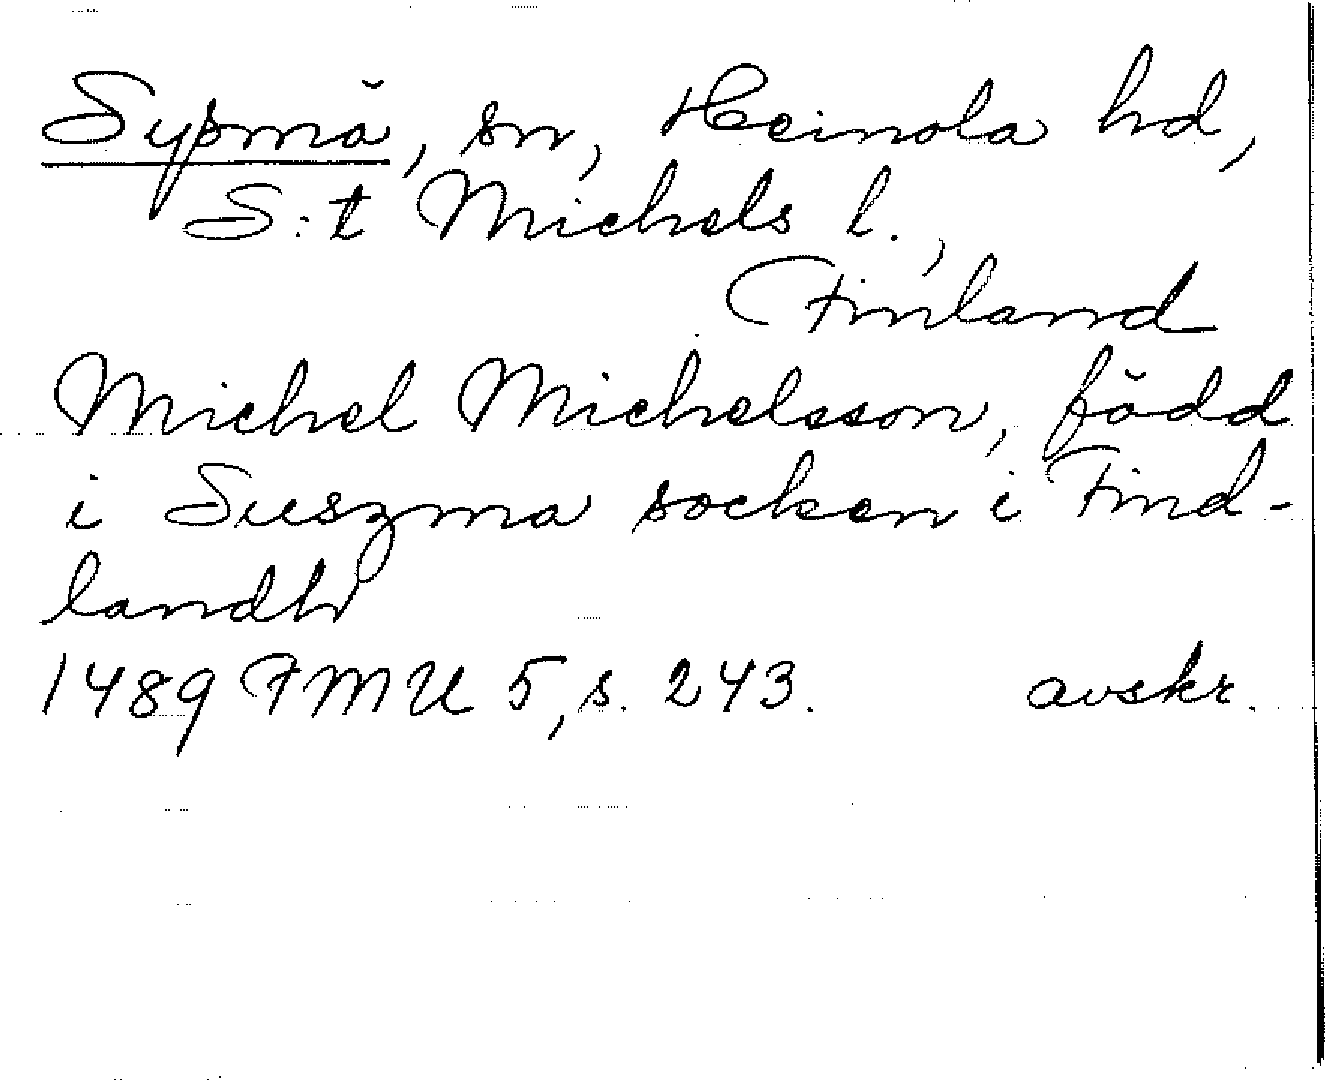 Sypmä, sn, Heinola hd,
S:t Michels l.,
Finland
Michel Michelsson, född
i Suszma socken i Find-
landh
1489 FMU 5, s. 243. avskr.